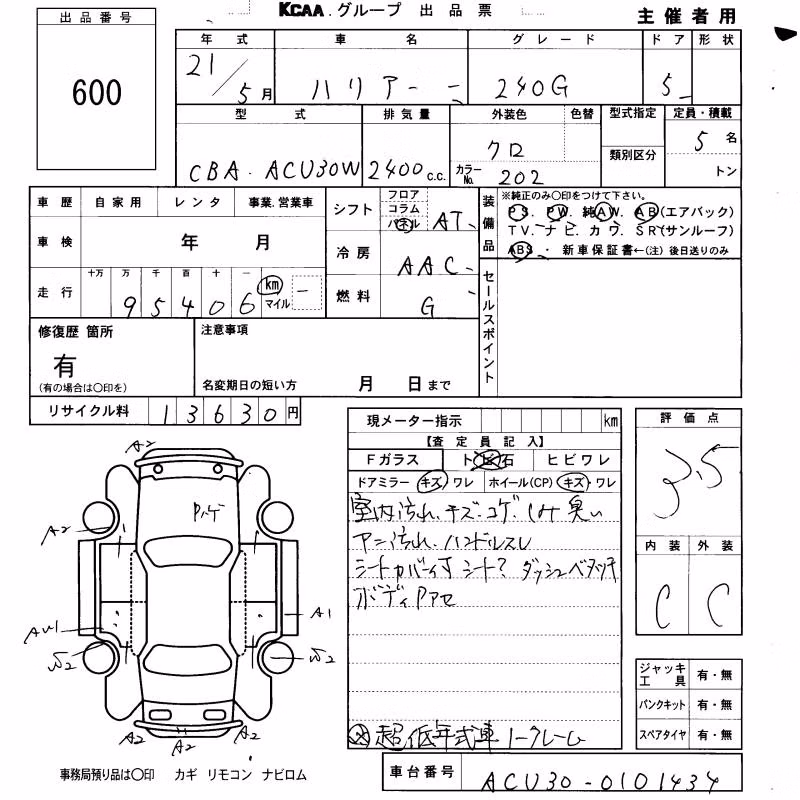 KCAA.グループ 出品票
主催者用
出品番号
600
年式 車名 グレード ドア 形状
21/5月 ハリアー 240G 5
型式 排気量 外装色 色替 型式指定 定員・積載
類別区分
CBA-ACU30W 2400c.c. クロ 5名
カラーNo. 202 トン
車歴 自家用 レンタ 事業・営業車
車検 年 月
走行 十万 万 千 百 十 一
95406 km マイル
シフト フロア コラム パネル AT
冷房 AAC
燃料 G
装備品
※純正のみ〇印をつけて下さい。
PS. PW. 純AW. AB(エアバック)
TV. ナビ. カワ. SR(サンルーフ)
ABS・新車保証書←(注)後日送りのみ
セールスポイント
修復歴 箇所
有
(有の場合は〇印を)
注意事項
名変期日の短い方 月 日まで
リサイクル料 13630円
現メーター指示 km
【査定員記入】
Fガラス トビ石 ヒビワレ
ドアミラー キズ・ワレ ホイール(CP) キズ・ワレ
室内汚れ.キズ.コゲ.しみ臭い
汚れ.ハンドルスレ
シートカバー付シート? ダッシュベタツキ
ボディPアセ
超低年式車ノークレーム
評価点
3.5
内装 外装
C C
ジャッキ工具 有・無
パンクキット 有・無
スペアタイヤ 有・無
A2
A2
AW1
A1
A2 A2 A2
事務局預り品は〇印 カギ リモコン ナビロム
車台番号 ACU30-0101434